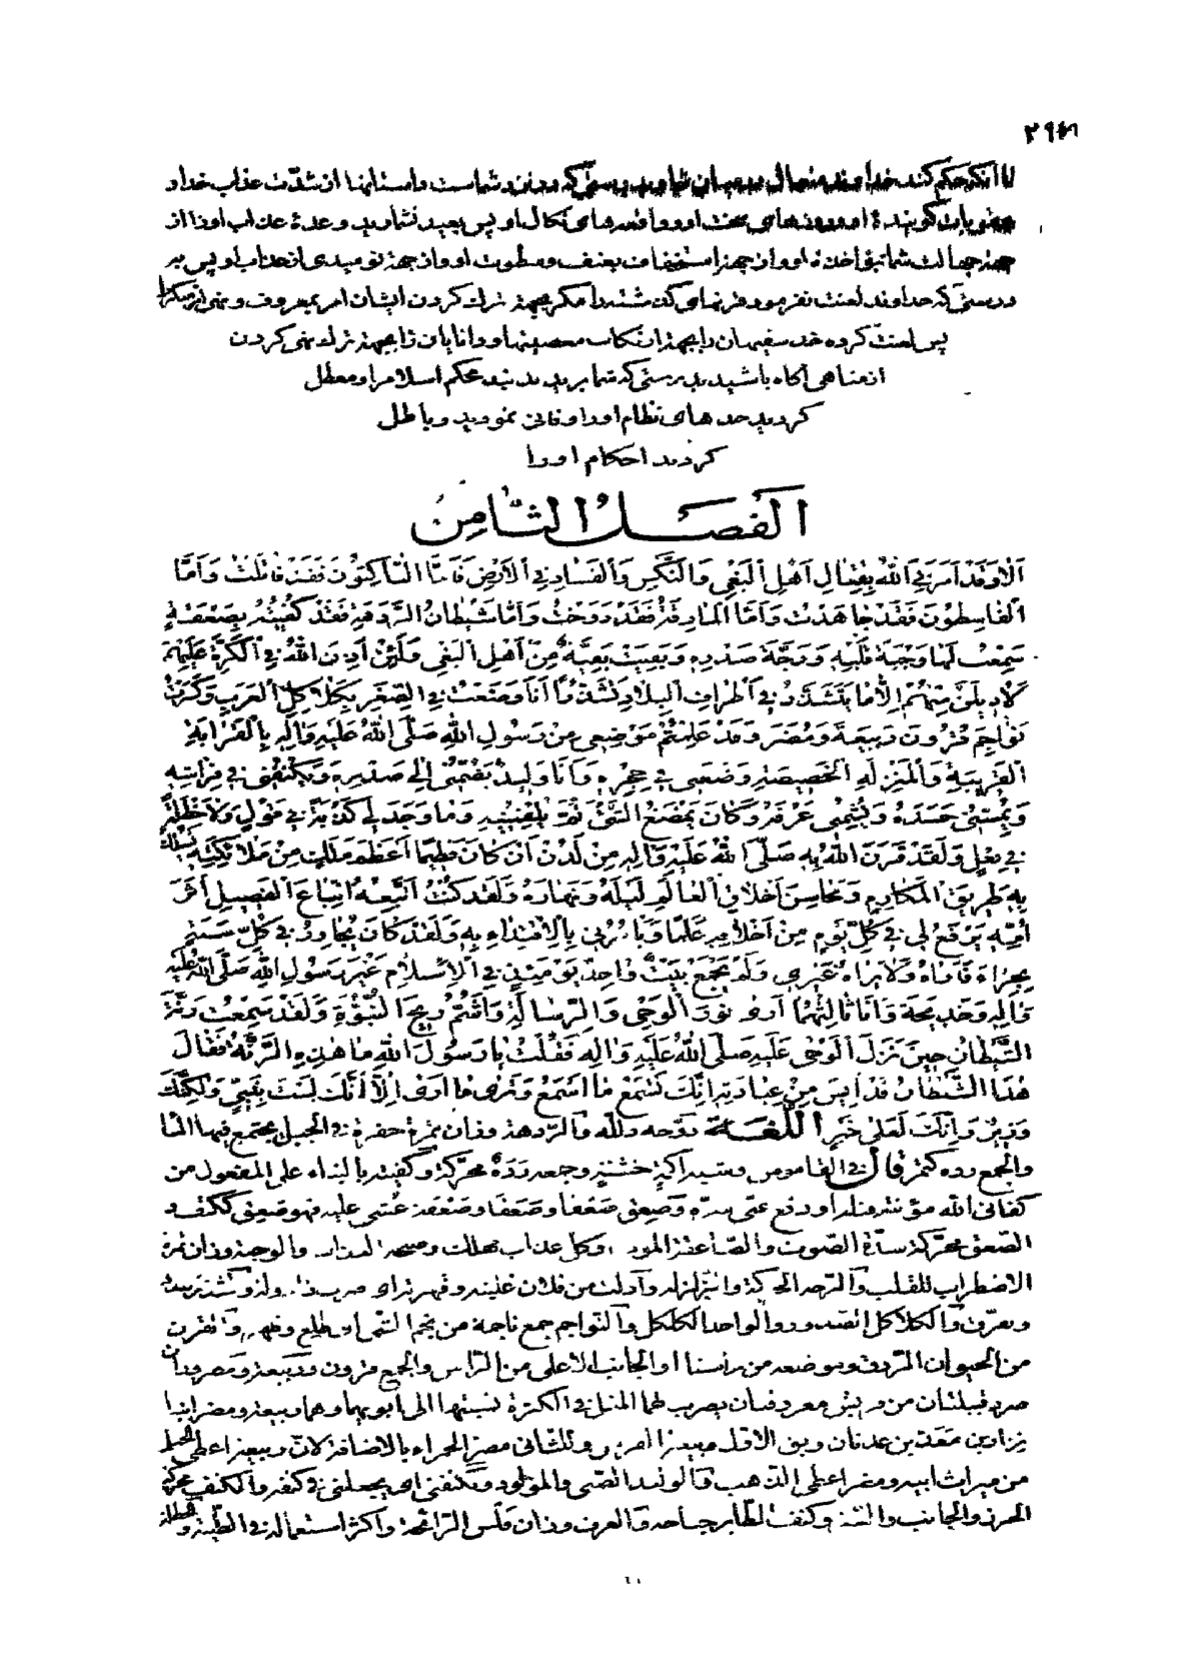 تا آنکه حکم کند خداوند متعال درمیان شما و بدرستی که در نزد شماست داستانها از شدّت عذاب خدا و
او و روزهای سخت او و واقعه‌های نکال او پس بعید نشمارید وعدهٔ عذاب او را از
جهة جهالت شما بمؤاخذهٔ او و از جهة استخفاف بعنف و سطوت او و از جهة نومیدی از عذاب او پس به
درستی که خداوند لعنت نفرمود قرنهای گذشته را مکر بجهة ترك کردن ایشان امر بمعروف و نهی از منکر را
پس لعنت کرده خدا سفیهان را بجهة ارتکاب معصیتها و دانایان را بجهة ترك نهی کردن
از مناهی آکاه باشید بدرستی که شما بریدید بند حکم اسلام را و معطل
کردید حدهای نظام او را و فانی نمودید و باطل
کردید احکام او را
اَلْفَصْلُ الثّامِنُ
اَلا وَقَدْ اَمَرَنِیَ اللّهُ بِقِتالِ اَهْلِ الْبَغْیِ وَالنَّكْثِ وَالْفَسادِ فِی الْاَرْضِ فَاَمَّا النّاكِثُونَ فَقَدْ قاتَلْتُ وَاَمَّا
الْقاسِطُونَ فَقَدْ جاهَدْتُ وَاَمَّا الْمارِقَةُ فَقَدْ دَوَّخْتُ وَاَمّا شَیْطانُ الرَّدْهَةِ فَقَدْ كُفیتُهُ بِصَعْقَةٍ
سَمِعْتُ لَها وَجْبَةَ قَلْبِهِ وَرَجَّةَ صَدْرِهِ وَبَقِیَتْ بَقِیَّةٌ مِنْ اَهْلِ الْبَغْیِ وَلَئِنْ اَذِنَ اللّهُ فِی الْكَرَّةِ عَلَیْهِمْ
لَاُدیلَنَّ مِنْهُمْ اِلاّ ما یَتَشَذَّرُ فی اَطْرافِ الْبِلادِ تَشَذُّراً اَنَا وَضَعْتُ فِی الصِّغَرِ بِكَلاكِلِ الْعَرَبِ وَكَسَرْتُ
نَواجِمَ قُرُونِ رَبیعَةَ وَمُضَرَ وَقَدْ عَلِمْتُمْ مَوْضِعی مِنْ رَسُولِ اللّهِ صَلَّی اللّهُ عَلَیْهِ وَالِهِ بِالْقَرابَةِ
الْقَریبَةِ وَالْمَنْزِلَةِ الْخَصیصَةِ وَضَعَنی فی حِجْرِهِ وَاَنَا وَلیدٌ یَضُمُّنی اِلی صَدْرِهِ وَیَكْنُفُنی فی فِراشِهِ
وَیُمِسُّنی جَسَدَهُ وَیُشِمُّنی عَرْفَهُ وَكانَ یَمْضَغُ الشَّیْءَ ثُمَّ یُلْقِمُنیهِ وَما وَجَدَ لی كَذْبَةً فی قَوْلٍ وَلا خَطْلَةً
فی فِعْلٍ وَلَقَدْ قَرَنَ اللّهُ بِهِ صَلَّی اللّهُ عَلَیْهِ وَالِهِ مِنْ لَدُنْ اَنْ كانَ فَطیماً اَعْظَمَ مَلَكٍ مِنْ مَلائِكَتِهِ یَسْلُكُ
بِهِ طَریقَ الْمَكارِمِ وَمَحاسِنَ اَخْلاقِ الْعالَمِ لَیْلَهُ وَنَهارَهُ وَلَقَدْ كُنْتُ اَتَّبِعُهُ اتِّباعَ الْفَصیلِ اَثَرَ
اُمِّهِ یَرْفَعُ لی فی كُلِّ یَوْمٍ مِنْ اَخْلاقِهِ عَلَماً وَیَاْمُرُنی بِالْاِقْتِداءِ بِهِ وَلَقَدْ كانَ یُجاوِرُ فی كُلِّ سَنَةٍ
بِحِراءَ فَاَراهُ وَلا یَراهُ غَیْری وَلَمْ یَجْمَعْ بَیْتٌ واحِدٌ یَوْمَئِذٍ فِی الْاِسْلامِ غَیْرَ رَسُولِ اللّهِ صَلَّی اللّهُ عَلَیْهِ
وَالِهِ وَخَدیجَةَ وَاَنَا ثالِثُهُما اَری نُورَ الْوَحْیِ وَالرِّسالَةِ وَاَشُمُّ ریحَ النُّبُوَّةِ وَلَقَدْ سَمِعْتُ رَنَّةَ
الشَّیْطانِ حینَ نَزَلَ الْوَحْیُ عَلَیْهِ صَلَّی اللّهُ عَلَیْهِ وَالِهِ فَقُلْتُ یا رَسُولَ اللّهِ ما هذِهِ الرَّنَّةُ فَقالَ
هذَا الشَّیْطانُ قَدْ اَیِسَ مِنْ عِبادَتِهِ اِنَّكَ تَسْمَعُ ما اَسْمَعُ وَتَری ما اَری اِلاّ اَنَّكَ لَسْتَ بِنَبِیٍّ وَلكِنَّكَ
وَزیرٌ وَاِنَّكَ لَعَلی خَیْرٍ اَللُّغَــة دوّخه ذلّله والرّدهة وزان تمرة حفرة فی الجبل یجتمع فیها الماء
والجمع رده كتمر قال فی القاموس وشبه اكمة خشنة وجمعه رده محرّكة وكفیته بالبناء علی المفعول من
كفانی اللّه مؤنته قتله او دفع عنّی شرّه وصعق صعقا وصعقا وصعقة غشی علیه فهو صعق ككتف و
الصّعق محرّكة شدّة الصّوت والصّاعقة الموت وكلّ عذاب مهلك وصیحة العذاب والوجبة وزان تمرة
الاضطراب للقلب والرّجّة الحركة والزّلزلة وادلت من فلان غلبته وقهرته وتشذّر تبدّد
وتفرّق والكلاكل الصّدور والواحد الكلكل والنّواجم جمع ناجمة من نجم الشّیء ای طلع وظهر والقرن
من الحیوان الرّوق وموضعه من رأسنا او الجانب الاعلی من الرّاس والجمع قرون وربیعة ومضر وزان
صرد قبیلتان من قریش معروفتان یضرب لهما المثل فی الكثرة نسبتهما الی أبویهما وهما ربیعة ومضر ابنا
نزار بن معدّ بن عدنان ویق الاوّل ربیعة الفرس وللثّانی مضر الحمراء بالاضافة لانّ ربیعة اعطی الخیل
من میراث ابیه ومضر اعطی الذّهب والولید الصّبی والمولود ویكنفنی ای یجعلنی فی كنفه والكنف محرّكة
الحرز والجانب والستر وكنف الطّائر جناحه والعرف وزان فلس الرّائحة واكثر استعماله فی الطّیّبة والخطلة